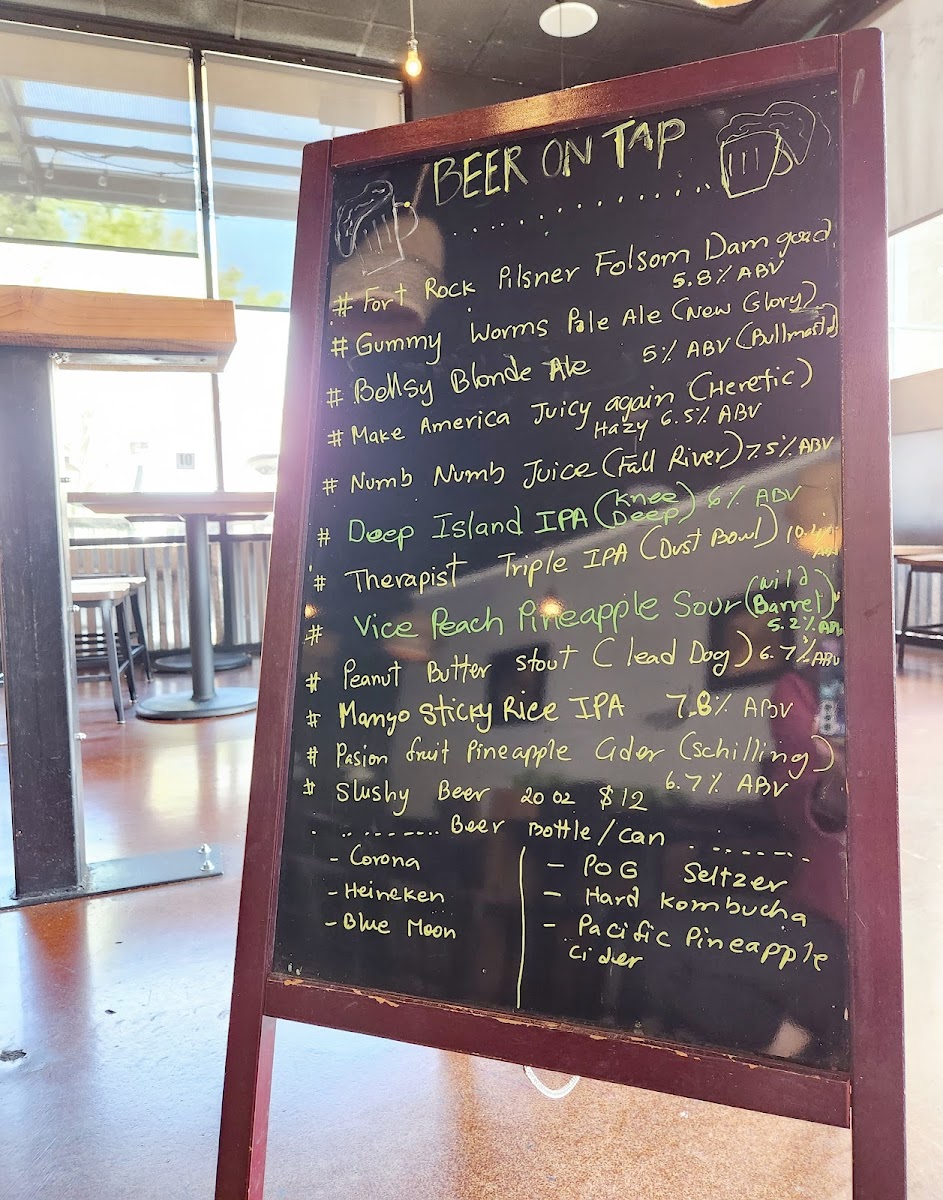 BEER ON TAP
# Fort Rock Pilsner Folsom Dam good
5.8% ABV
# Gummy Worms Pale Ale (New Glory)
# Bellsy Blonde Ale 5% ABV (Bullmastif)
# Make America Juicy again (Heretic)
Hazy 6.5% ABV
# Numb Numb Juice (Fall River) 7.5% ABV
# Deep Island IPA (Knee Deep) 6% ABV
# Therapist Triple IPA (Dust Bowl)
# Vice Peach Pineapple Sour (Wild Barrel)
5.2% ABV
# Peanut Butter stout (lead Dog) 6.7% ABV
# Mango sticky Rice IPA 7.8% ABV
# Pasion fruit Pineapple Cider (Schilling)
6.7% ABV
# Slushy Beer 20 oz $12
Beer Bottle/can
- Corona
- Heineken
- Blue Moon
- POG Seltzer
- Hard kombucha
- Pacific Pineapple
Cider
10